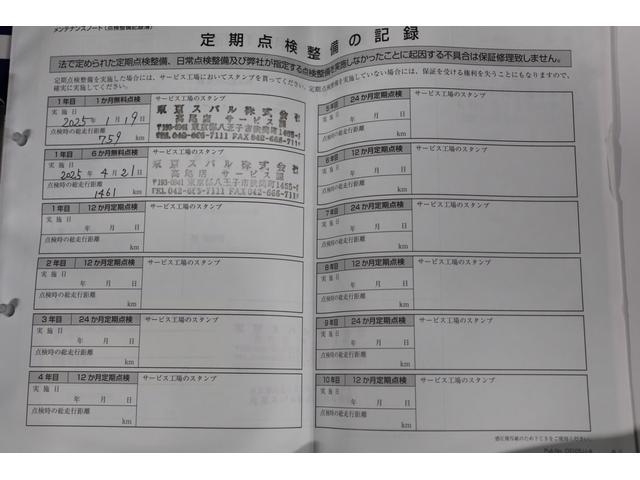 メンテナンスノート（点検整備記録簿）
定期点検整備の記録
法で定められた定期点検整備、日常点検整備及び弊社が指定する点検整備を実施しなかったことに起因する不具合は保証修理致しません。
定期点検整備を実施した場合には、サービス工場においてスタンプを貰ってください。定期点検整備を実施していない場合には、保証を受ける権利を失うことにもなりますので、
確実に実施してください。
1年目 1か月無料点検 サービス工場のスタンプ
実施日
2025年1月19日
点検時の総走行距離
759 km
東京スバル株式会社
高尾店 サービス課
〒193-0941 東京都八王子市狭間町1455-1
TEL.042-665-7111 FAX 042-666-711
1年目 6か月無料点検 サービス工場のスタンプ
実施日
2025年4月21日
点検時の総走行距離
1461 km
東京スバル株式会社
高尾店 サービス課
〒193-0941 東京都八王子市狭間町1455-1
TEL 042-665-7111 FAX 042-666-711
1年目 12か月定期点検 サービス工場のスタンプ
実施日
年 月 日
点検時の総走行距離
km
2年目 12か月定期点検 サービス工場のスタンプ
実施日
年 月 日
点検時の総走行距離
km
3年目 24か月定期点検 サービス工場のスタンプ
実施日
年 月 日
点検時の総走行距離
km
4年目 12か月定期点検 サービス工場のスタンプ
実施日
年 月 日
点検時の総走行距離
km
5年目 24か月定期点検 サービス工場のスタンプ
実施日
年 月 日
点検時の総走行距離
km
6年目 12か月定期点検 サービス工場のスタンプ
実施日
年 月 日
点検時の総走行距離
km
7年目 24か月定期点検 サービス工場のスタンプ
実施日
年 月 日
点検時の総走行距離
km
8年目 12か月定期点検 サービス工場のスタンプ
実施日
年 月 日
点検時の総走行距離
km
9年目 24か月定期点検 サービス工場のスタンプ
実施日
年 月 日
点検時の総走行距離
km
10年目 12か月定期点検 サービス工場のスタンプ
実施日
年 月 日
点検時の総走行距離
km
感圧複写紙のため下じきをご使用ください。